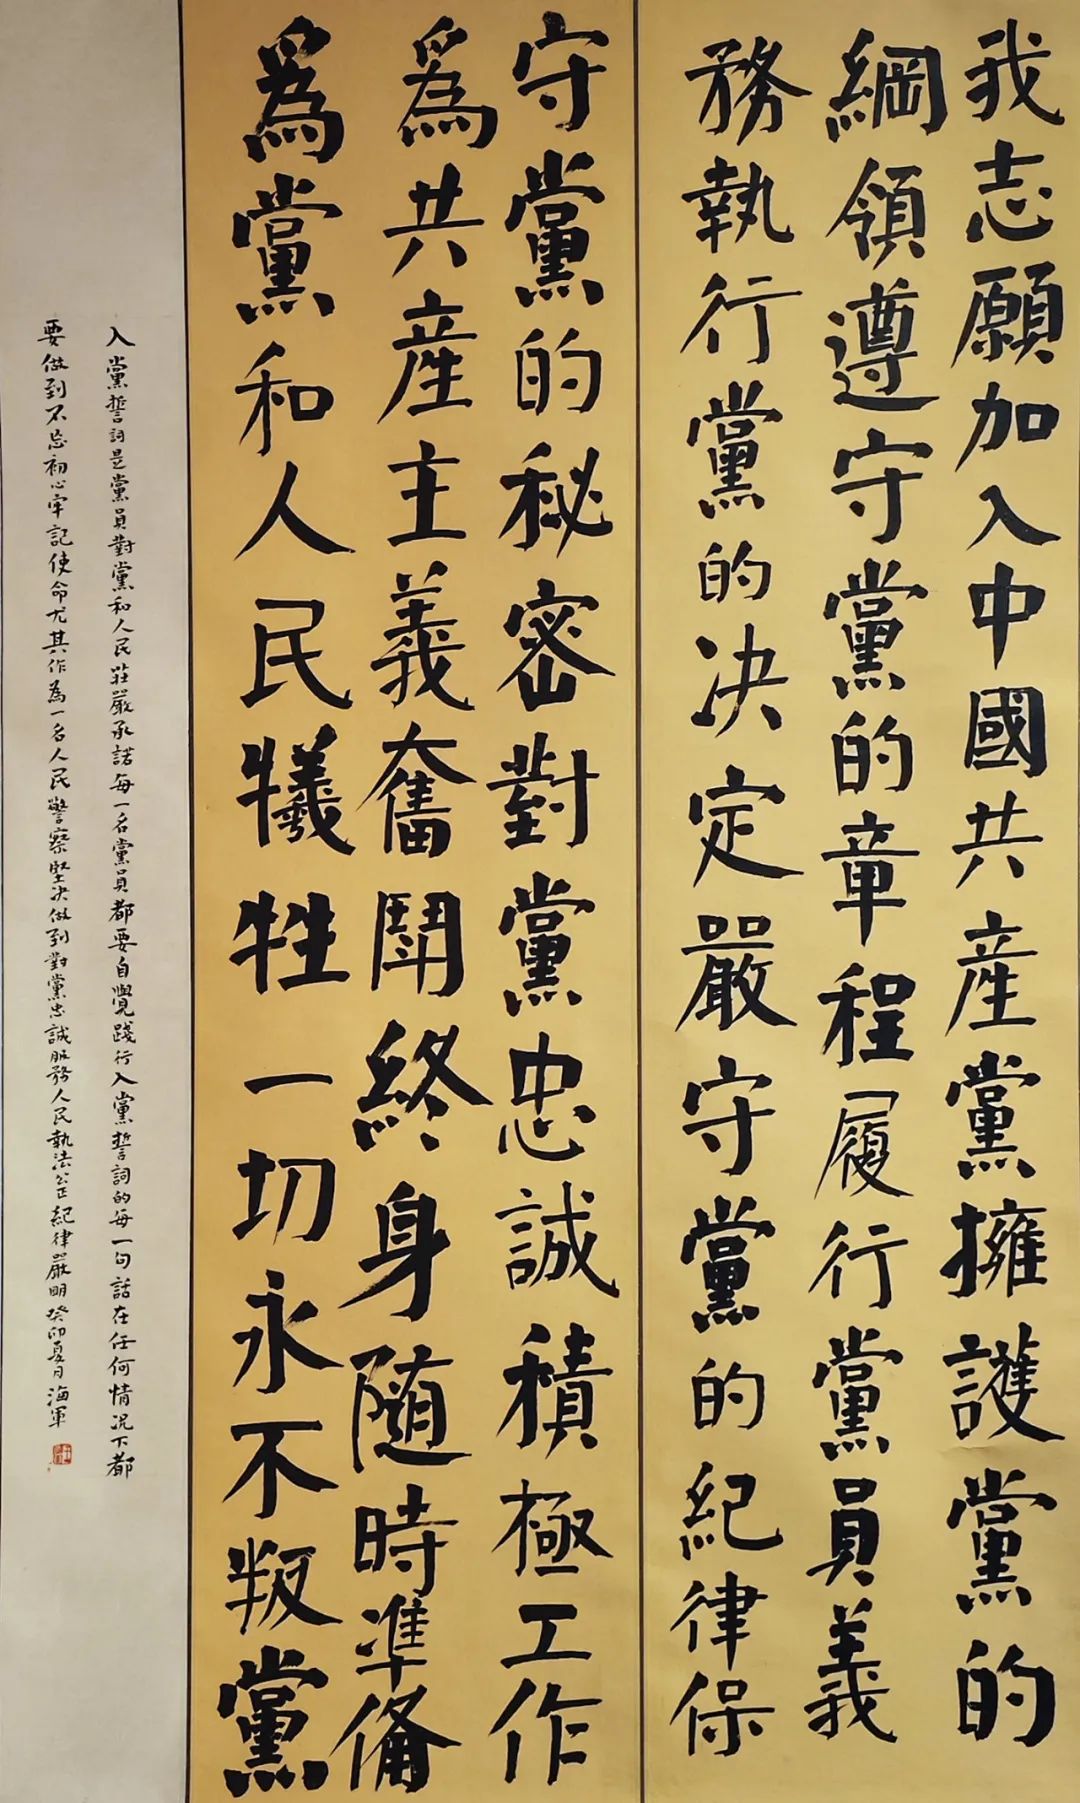 我志願加入中國共産黨擁護黨的
綱領遵守黨的章程履行黨員義
務執行黨的决定嚴守黨的紀律保
守黨的秘密對黨忠誠積極工作
爲共産主義奮鬪終身随時準備
爲黨和人民犧牲一切永不叛黨
入黨誓詞是黨員對黨和人民莊嚴承諾每一名黨員都要自覺踐行入黨誓詞的每一句話在任何情况下都
要做到不忘初心牢記使命尤其作為一名人民警察堅决做到對黨忠誠服務人民執法公正紀律嚴明癸卯夏月海軍